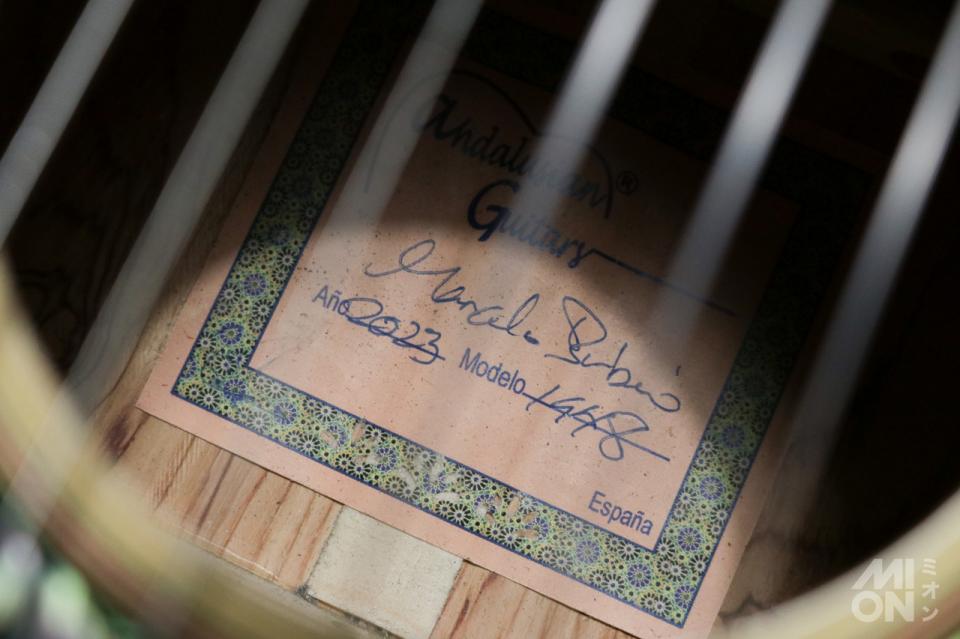 Andalusian®
Guitars
Marcelo Barbero
Año 2023 Modelo 1448
España
MI ミオン
ON